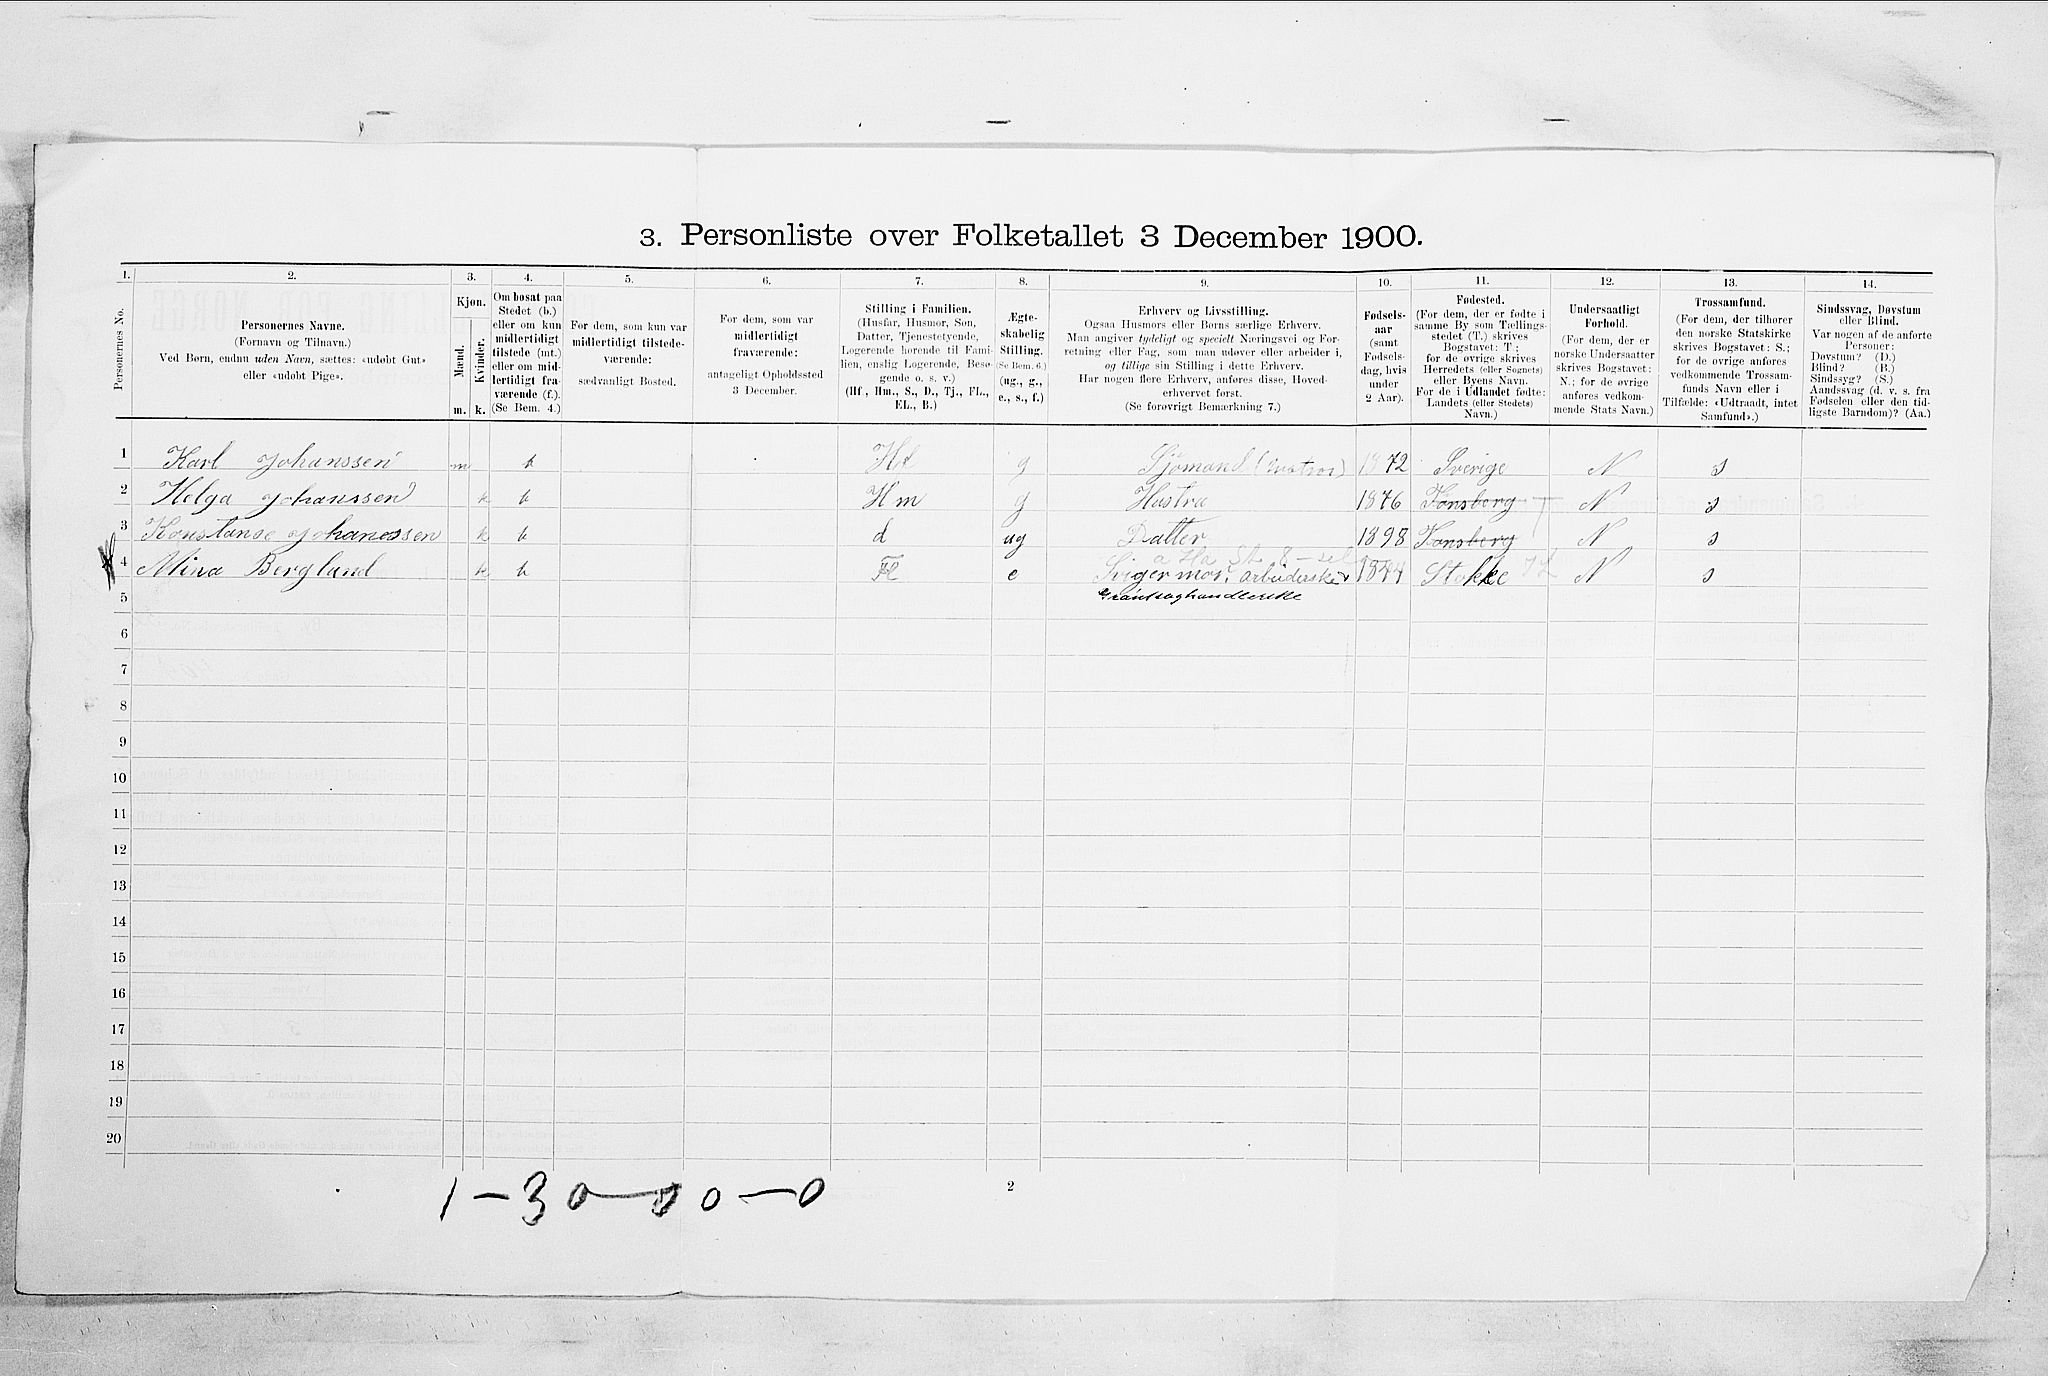 3. Personliste over Folketallet 3 December 1900.
1. 2. 3. 4. 5. 6. 7. 8. 9. 10. 11. 12. 13. 14.
Personernes No.
Personernes Navne.
(Fornavn og Tilnavn.)
Ved Børn, endnu uden Navn, sættes: «udøbt Gut»
eller «udøbt Pige».
Kjøn.
Mænd.
Kvinder.
m. k.
Om bosat paa
Stedet (b.)
eller om kun
midlertidigt
tilstede (mt.)
eller om mid-
lertidigt fra-
værende (f.)
(Se Bem. 4.)
For dem, som kun var
midlertidigt tilstede-
værende:
sædvanligt Bosted.
For dem, som var
midlertidigt
fraværende:
antageligt Opholdssted
3 December.
Stilling i Familien.
(Husfar, Husmor, Søn,
Datter, Tjenestetyende,
Logerende hørende til Fami-
lien, enslig Logerende, Besø-
gende o. s. v.)
(Hf., Hm., S., D., Tj., FL.,
EL., B.)
Ægte-
skabelig
Stilling.
(Se Bem. 6.)
(ug., g.,
e., s., f.)
Erhverv og Livsstilling.
Ogsaa Husmors eller Børns særlige Erhverv.
Man angiver tydeligt og specielt Næringsvei og For-
retning eller Fag, som man udøver eller arbeider i,
og tillige sin Stilling i dette Erhverv.
Har nogen flere Erhverv, anføres disse, Hoved-
erhvervet først.
(Se forøvrigt Bemærkning 7.)
Fødsels-
aar
(samt
Fødsels-
dag, hvis
under
2 Aar).
Fødested.
(For dem, der er fødte i
samme By som Tællings-
stedet (T.) skrives
Bogstavet: T.;
for de øvrige skrives
Herredets (eller Sognets)
eller Byens Navn.
For de i Udlandet fødte:
Landets (eller Stedets)
Navn.)
Undersaatligt
Forhold.
(For dem, der er
norske Undersaatter
skrives Bogstavet:
N.; for de øvrige
anføres vedkom-
mende Stats Navn.)
Trossamfund.
(For dem, der tilhører
den norske Statskirke
skrives Bogstavet: S.;
for de øvrige anføres
vedkommende Trossam-
funds Navn eller i
Tilfælde: «Udtraadt, intet
Samfund».)
Sindssvag, Døvstum
eller Blind.
Var nogen af de anførte
Personer:
Døvstum? (D.)
Blind? (B.)
Sindssyg? (S.)
Aandssvag (d. v. s. fra
Fødselen eller den tid-
ligste Barndom)? (Aa.)
1 Karl Johanssen m b Hf g Sjømand (Matros) 1872 Sverige N s
2 Helga Johanssen k b Hm g Hustru 1876 Tønsberg T N s
3 Konstanse Johanssen k b d ug Datter 1898 Tønsberg N s
4 Mina Bergland k b FL e Svigermor, arbeiderske 1844 Stokke N s
5 Grøntsaghandlerske
6
7
8
9
10
11
12
13
14
15
16
17
18
19
20
2